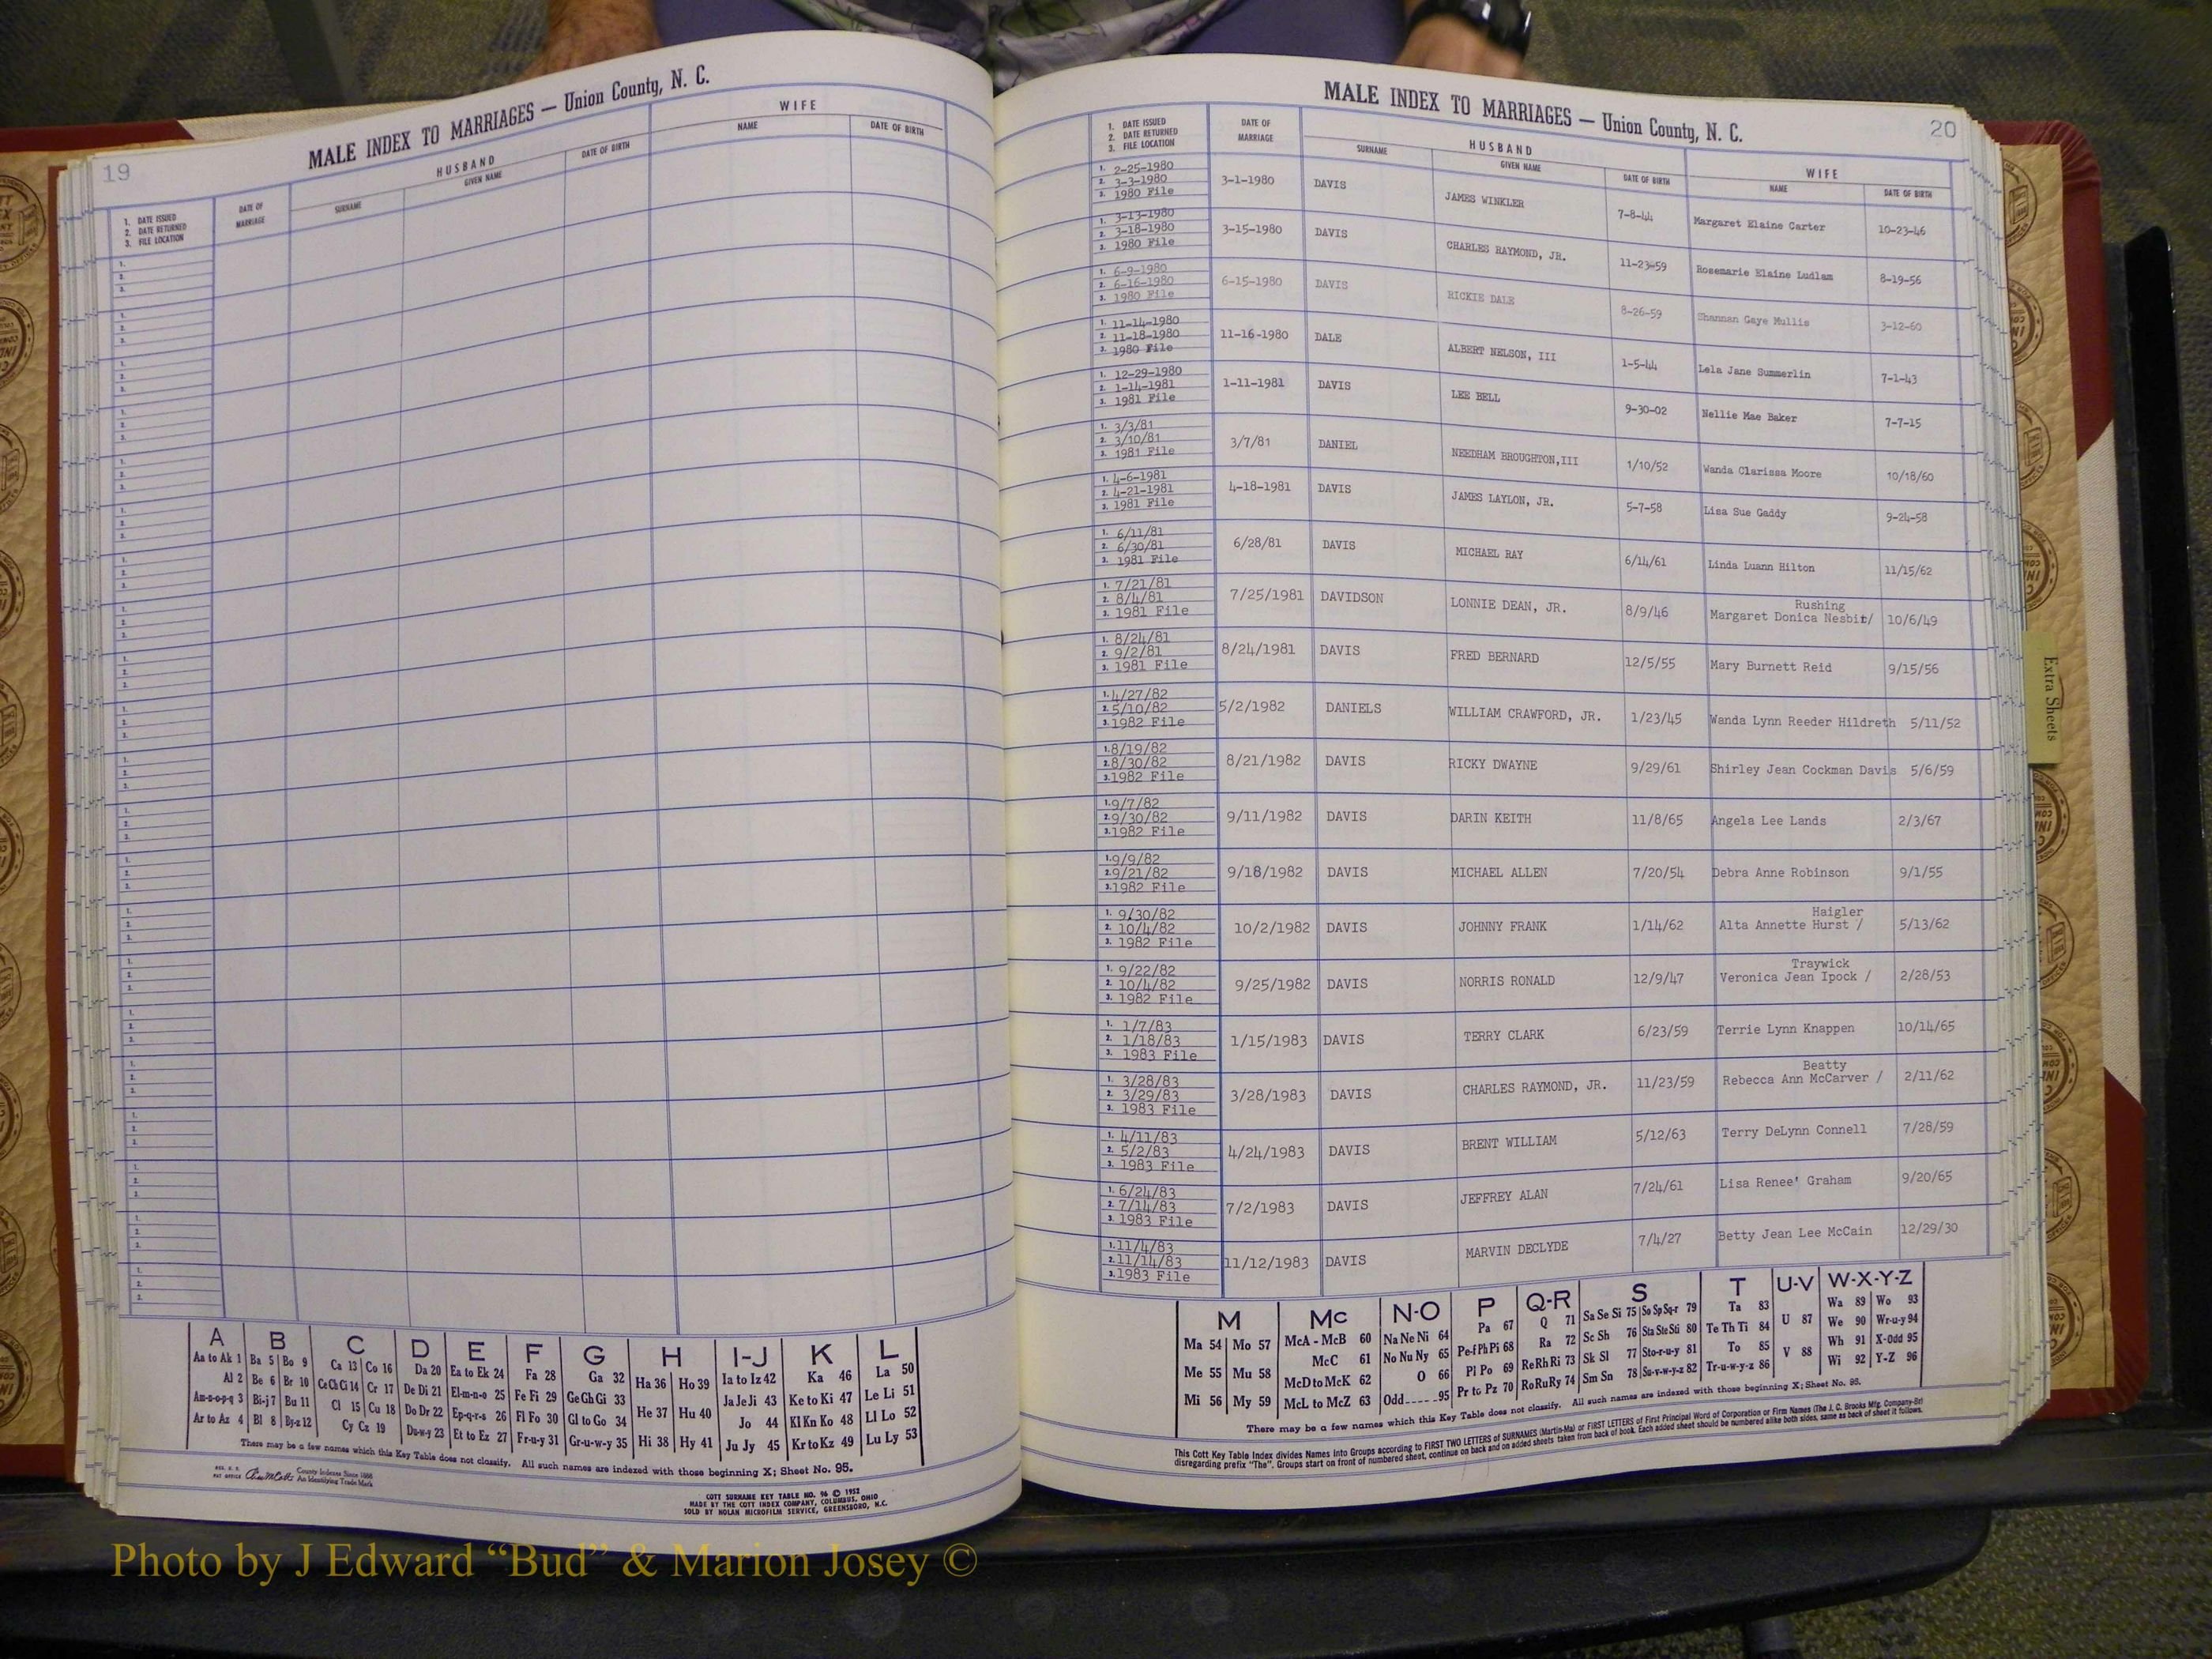 19
MALE INDEX TO MARRIAGES — Union County, N. C.
1. DATE ISSUED
2. DATE RETURNED
3. FILE LOCATION
DATE OF MARRIAGE
HUSBAND
SURNAME
GIVEN NAME
DATE OF BIRTH
WIFE
NAME
DATE OF BIRTH
A B C D E F G H I-J K L
Aa to Ak 1 Ba 5 Bo 9 Ca 13 Co 16 Da 20 Ea to Ek 24 Fa 28 Ga 32 Ha 36 Ho 39 Ia to Iz 42 Ka 46 La 50
Al 2 Be 6 Br 10 Ce Ch Ci 14 Cr 17 De Di 21 El-m-n-o 25 Fe Fi 29 Ge Gh Gi 33 He 37 Hu 40 Ja Je Ji 43 Ke to Ki 47 Le Li 51
Am-n-o-p-q 3 Bi-j 7 Bu 11 Cl 15 Cu 18 Do Dr 22 Ep-q-r-s 26 Fl Fo 30 Gl to Go 34 Hi 38 Hy 41 Jo 44 Kl Kn Ko 48 Ll Lo 52
Ar to Az 4 Bl 8 By-z 12 Cy Cz 19 Du-w-y 23 Et to Ez 27 Fr-u-y 31 Gr-u-w-y 35 Ju Jy 45 Kr to Kz 49 Lu Ly 53
There may be a few names which this Key Table does not classify. All such names are indexed with those beginning X; Sheet No. 95.
County Indexes Since 1888
An Identifying Trade Mark
COTT SURNAME KEY TABLE NO. 96 © 1952
MADE BY THE COTT INDEX COMPANY, COLUMBUS, OHIO
SOLD BY NOLAN MICROFILM SERVICE, GREENSBORO, N.C.
MALE INDEX TO MARRIAGES — Union County, N. C.
20
1. DATE ISSUED
2. DATE RETURNED
3. FILE LOCATION
DATE OF MARRIAGE
HUSBAND
SURNAME
GIVEN NAME
DATE OF BIRTH
WIFE
NAME
DATE OF BIRTH
1. 2-25-1980
2. 3-3-1980
3. 1980 File
3-1-1980 DAVIS JAMES WINKLER 7-8-44 Margaret Elaine Carter 10-23-46
1. 3-13-1980
2. 3-18-1980
3. 1980 File
3-15-1980 DAVIS CHARLES RAYMOND, JR. 11-23-59 Rosemarie Elaine Ludlam 8-19-56
1. 6-9-1980
2. 6-16-1980
3. 1980 File
6-15-1980 DAVIS RICKIE DALE 8-26-59 Shannan Gaye Mullis 3-12-60
1. 11-14-1980
2. 11-18-1980
3. 1980 File
11-16-1980 DALE ALBERT NELSON, III 1-5-44 Lela Jane Summerlin 7-1-43
1. 12-29-1980
2. 1-14-1981
3. 1981 File
1-11-1981 DAVIS LEE BELL 9-30-02 Nellie Mae Baker 7-7-15
1. 3/3/81
2. 3/10/81
3. 1981 File
3/7/81 DANIEL NEEDHAM BROUGHTON,III 1/10/52 Wanda Clarissa Moore 10/18/60
1. 4-6-1981
2. 4-21-1981
3. 1981 File
4-18-1981 DAVIS JAMES LAYLON, JR. 5-7-58 Lisa Sue Gaddy 9-24-58
1. 6/11/81
2. 6/30/81
3. 1981 File
6/28/81 DAVIS MICHAEL RAY 6/14/61 Linda Luann Hilton 11/15/62
1. 7/21/81
2. 8/4/81
3. 1981 File
Rushing
7/25/1981 DAVIDSON LONNIE DEAN, JR. 8/9/46 Margaret Donica Nesbit/ 10/6/49
1. 8/24/81
2. 9/2/81
3. 1981 File
8/24/1981 DAVIS FRED BERNARD 12/5/55 Mary Burnett Reid 9/15/56
1. 4/27/82
2. 5/10/82
3. 1982 File
5/2/1982 DANIELS WILLIAM CRAWFORD, JR. 1/23/45 Wanda Lynn Reeder Hildreth 5/11/52
1. 8/19/82
2. 8/30/82
3. 1982 File
8/21/1982 DAVIS RICKY DWAYNE 9/29/61 Shirley Jean Cockman Davis 5/6/59
1. 9/7/82
2. 9/30/82
3. 1982 File
9/11/1982 DAVIS DARIN KEITH 11/8/65 Angela Lee Lands 2/3/67
1. 9/9/82
2. 9/21/82
3. 1982 File
9/18/1982 DAVIS MICHAEL ALLEN 7/20/54 Debra Anne Robinson 9/1/55
1. 9/30/82
2. 10/4/82
3. 1982 File
Haigler
10/2/1982 DAVIS JOHNNY FRANK 1/14/62 Alta Annette Hurst / 5/13/62
1. 9/22/82
2. 10/4/82
3. 1982 File
Traywick
9/25/1982 DAVIS NORRIS RONALD 12/9/47 Veronica Jean Ipock / 2/28/53
1. 1/7/83
2. 1/18/83
3. 1983 File
1/15/1983 DAVIS TERRY CLARK 6/23/59 Terrie Lynn Knappen 10/14/65
1. 3/28/83
2. 3/29/83
3. 1983 File
Beatty
3/28/1983 DAVIS CHARLES RAYMOND, JR. 11/23/59 Rebecca Ann McCarver / 2/11/62
1. 4/11/83
2. 5/2/83
3. 1983 File
4/24/1983 DAVIS BRENT WILLIAM 5/12/63 Terry DeLynn Connell 7/28/59
1. 6/24/83
2. 7/14/83
3. 1983 File
7/2/1983 DAVIS JEFFREY ALAN 7/24/61 Lisa Renee' Graham 9/20/65
1. 11/4/83
2. 11/14/83
3. 1983 File
11/12/1983 DAVIS MARVIN DECLYDE 7/4/27 Betty Jean Lee McCain 12/29/30
Extra Sheets
M Mc N-O P Q-R S T U-V W-X-Y-Z
Ma 54 Mo 57 McA - McB 60 Na Ne Ni 64 Pa 67 Q 71 Sa Se Si 75 So Sp Sq-r 79 Ta 83 U 87 Wa 89 Wo 93
Me 55 Mu 58 McC 61 No Nu Ny 65 Pe-f Ph Pi 68 Ra 72 Sc Sh 76 Sta Ste Sti 80 Te Th Ti 84 V 88 We 90 Wr-u-y 94
Mi 56 My 59 McD to McK 62 O 66 Pl Po 69 Re Rh Ri 73 Sk Sl 77 Sto-r-u-y 81 To 85 Wh 91 X-Odd 95
McL to McZ 63 Odd 95 Pr to Pz 70 Ro Ru Ry 74 Sm Sn 78 Su-v-w-y-z 82 Tr-u-w-y-z 86 Wi 92 Y-Z 96
There may be a few names which this Key Table does not classify. All such names are indexed with those beginning X; Sheet No. 95.
This Cott Key Table Index divides Names into Groups according to FIRST TWO LETTERS of SURNAMES (Martin-Ma) or FIRST LETTERS of First Principal Word of Corporation or Firm Names (The J. C. Brooks Mfg. Company-Br)
disregarding prefix "The". Groups start on front of numbered sheet, continue on back and on added sheets taken from back of book. Each added sheet should be numbered alike both sides, same as back of sheet it follows.
Photo by J Edward “Bud” & Marion Josey ©